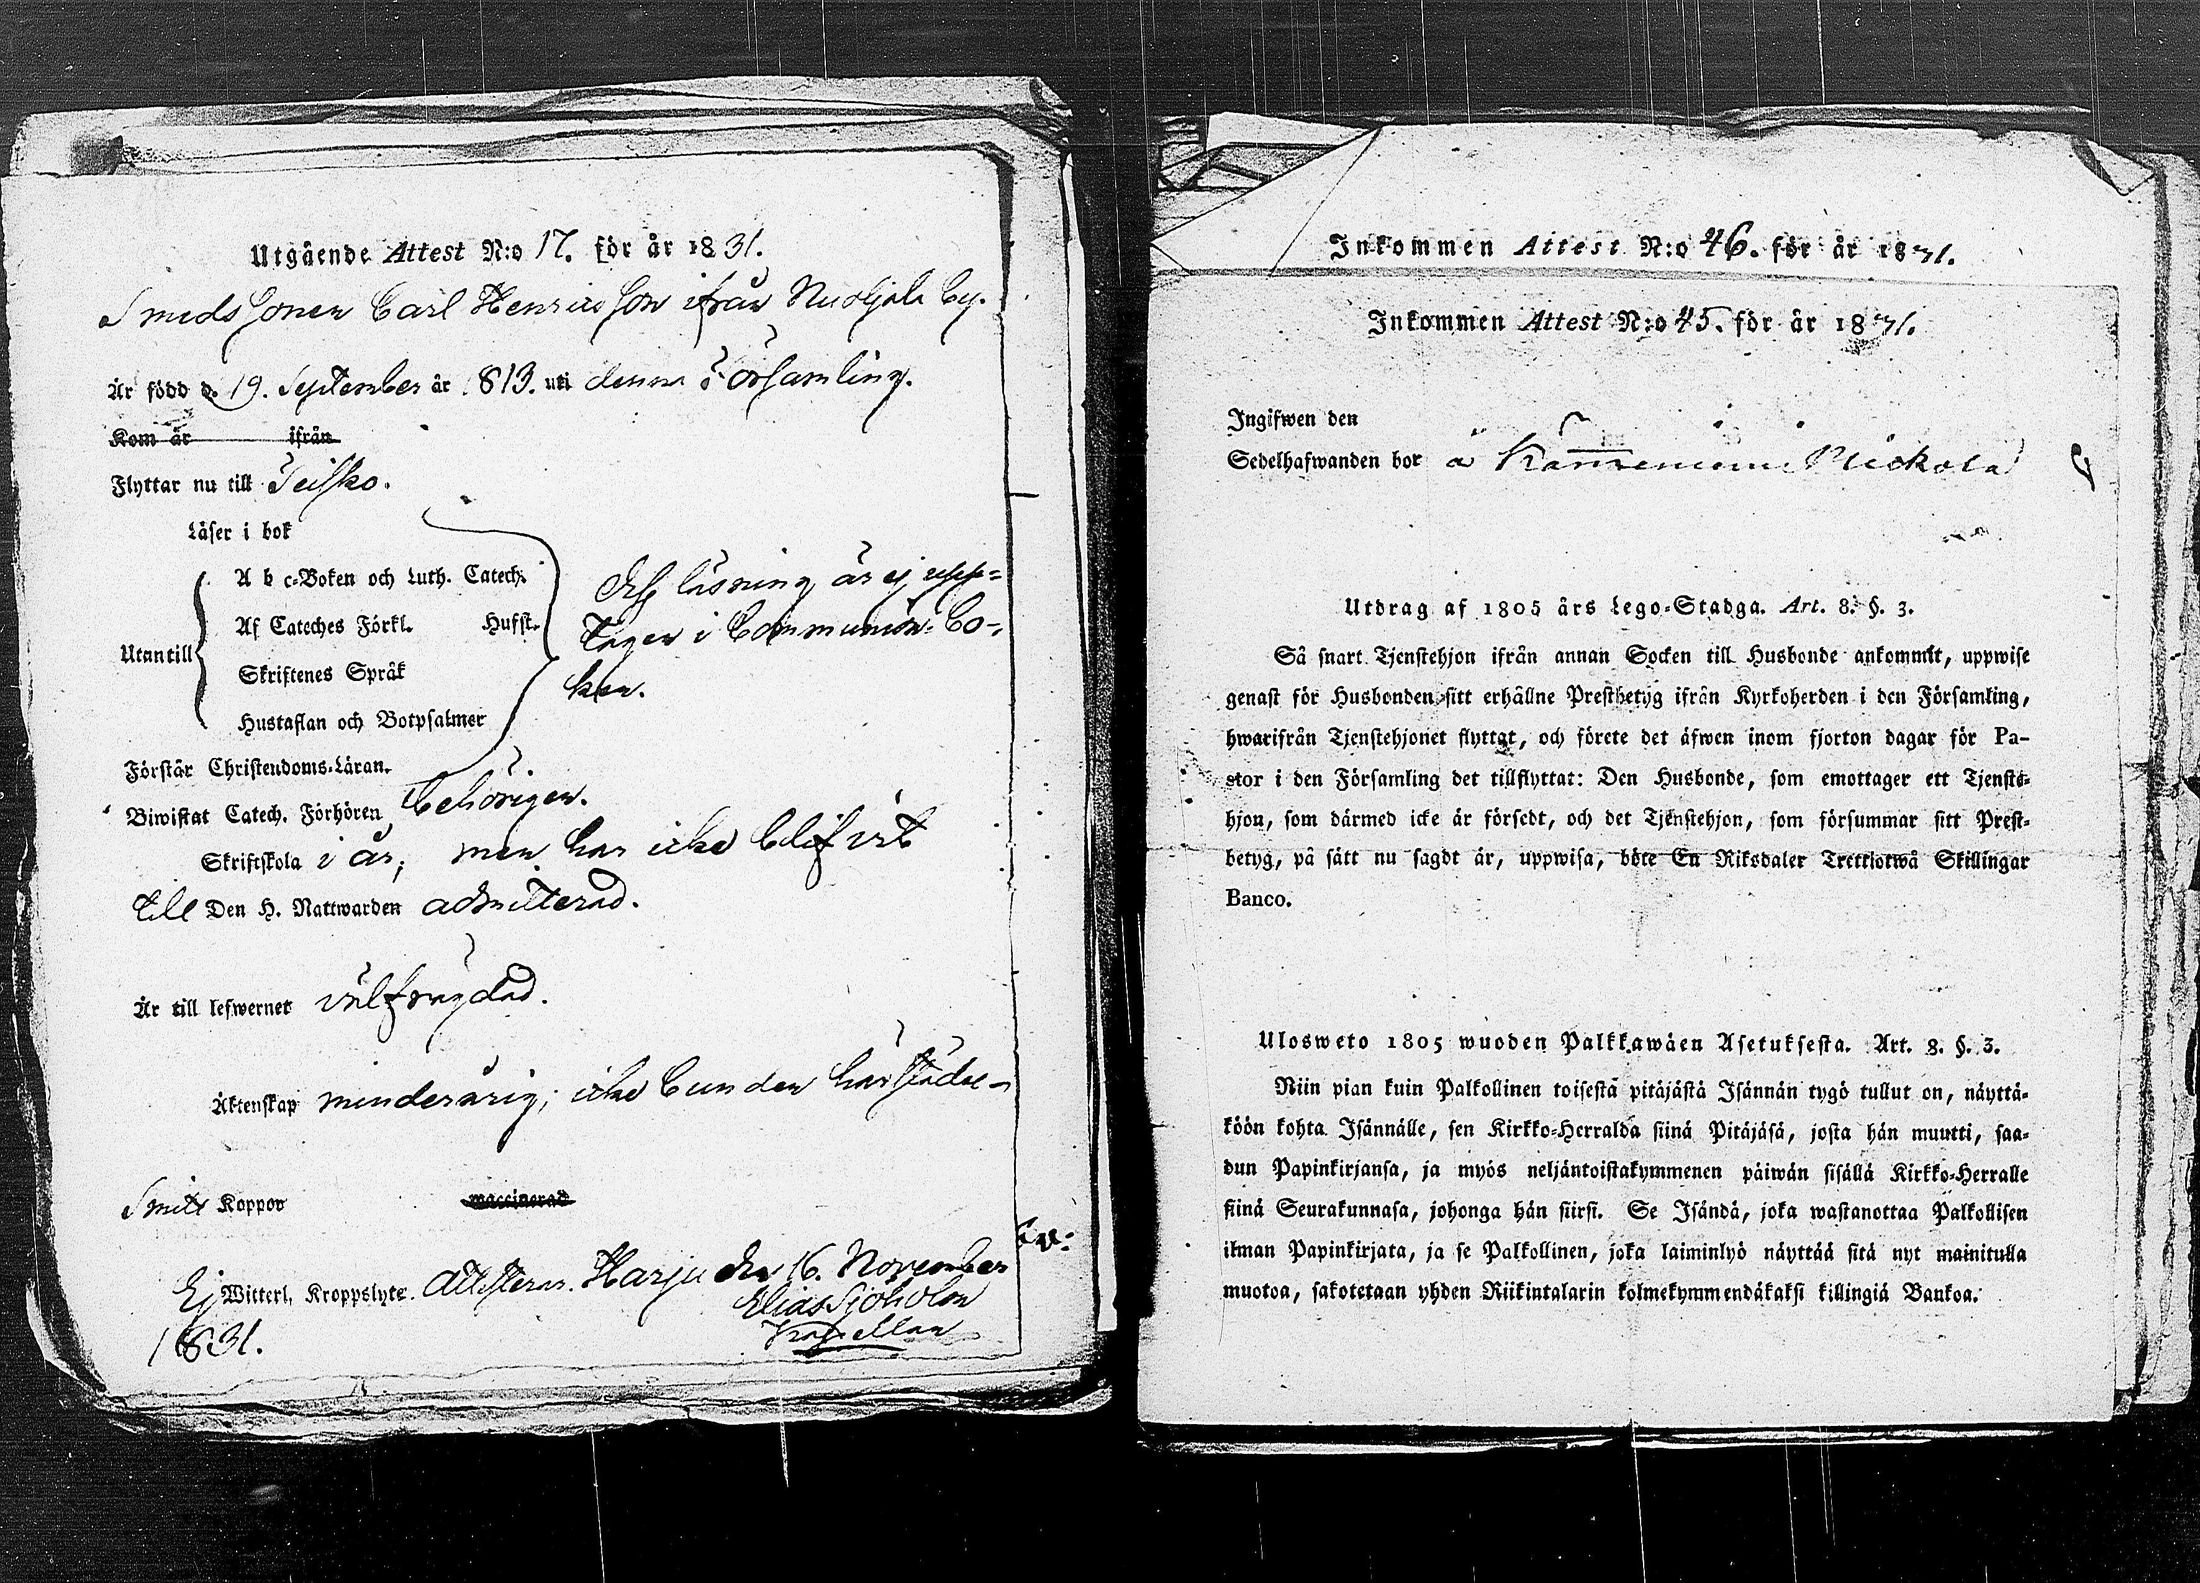 Utgående Attest N:o 17. för år 1831.
Smeds Sonen Carl Henricsson ifrån Nuoljala by.
Är född d. 19. September år 1813. uti denna Församling.
Kom år ifrån
Flyttar nu till Teisko.
Läser i bok
A b c-Boken och Luth. Catech.
Af Cateches Förkl. Hufst.
Utantill
Skriftenes Språk
Hustaflan och Botpsalmer
Dess läsning är ej upp-
tagen i Communion-Bo-
ken.
Förstår Christendoms-Läran.
Biwistat Catech. Förhören behörigen.
Skriftskola i år; men har icke blifvit
till Den H. Nattwarden admitterad.
Är till lefwernet välfrägdad.
Äktenskap minderårig; icke bunden härstädes
Smitt Koppor waccinerad
Ej Witterl. Kroppslyte. Attesterar. Harju den 16. November
1831. Elias Sjöholm
Kapellan
Inkommen Attest N:o 46. för år 1831.
Inkommen Attest N:o 45. för år 1831.
Ingifwen den
Sedelhafwanden bor å
Utdrag af 1805 års Lego-Stadga. Art. 8. §. 3.
Så snart Tjenstehjon ifrån annan Socken till Husbonde ankommit, uppwise
genast för Husbonden sitt erhållne Prestbetyg ifrån Kyrkoherden i den Församling,
hwarifrån Tjenstehjonet flyttat, och förete det äfwen inom fjorton dagar för Pa-
stor i den Församling det tillflyttat: Den Husbonde, som emottager ett Tjenste-
hjon, som därmed icke är försedt, och det Tjenstehjon, som försummar sitt Prest-
betyg, på sätt nu sagdt är, uppwisa, böte En Riksdaler Trettiotwå Skillingar
Banco.
Ulosweto 1805 wuoden Palkkawäen Asetuksesta. Art. 8. §. 3.
Niin pian kuin Palkollinen toisestä pitäjästä Isännän tygö tullut on, näyttä-
köön kohta Isännälle, sen Kirkko-Herralda siinä Pitäjäsä, josta hän muutti, saa-
dun Papinkirjansa, ja myös neljäntoistakymmenen päiwän sisällä Kirkko-Herralle
siinä Seurakunnasa, johonga hän siirsi. Se Isändä, joka wastanottaa Palkollisen
ilman Papinkirjata, ja se Palkollinen, joka laiminlyö näyttää sitä nyt mainitulla
muotoa, sakotetaan yhden Riikintalarin kolmekymmendäkaksi killingiä Bankoa.